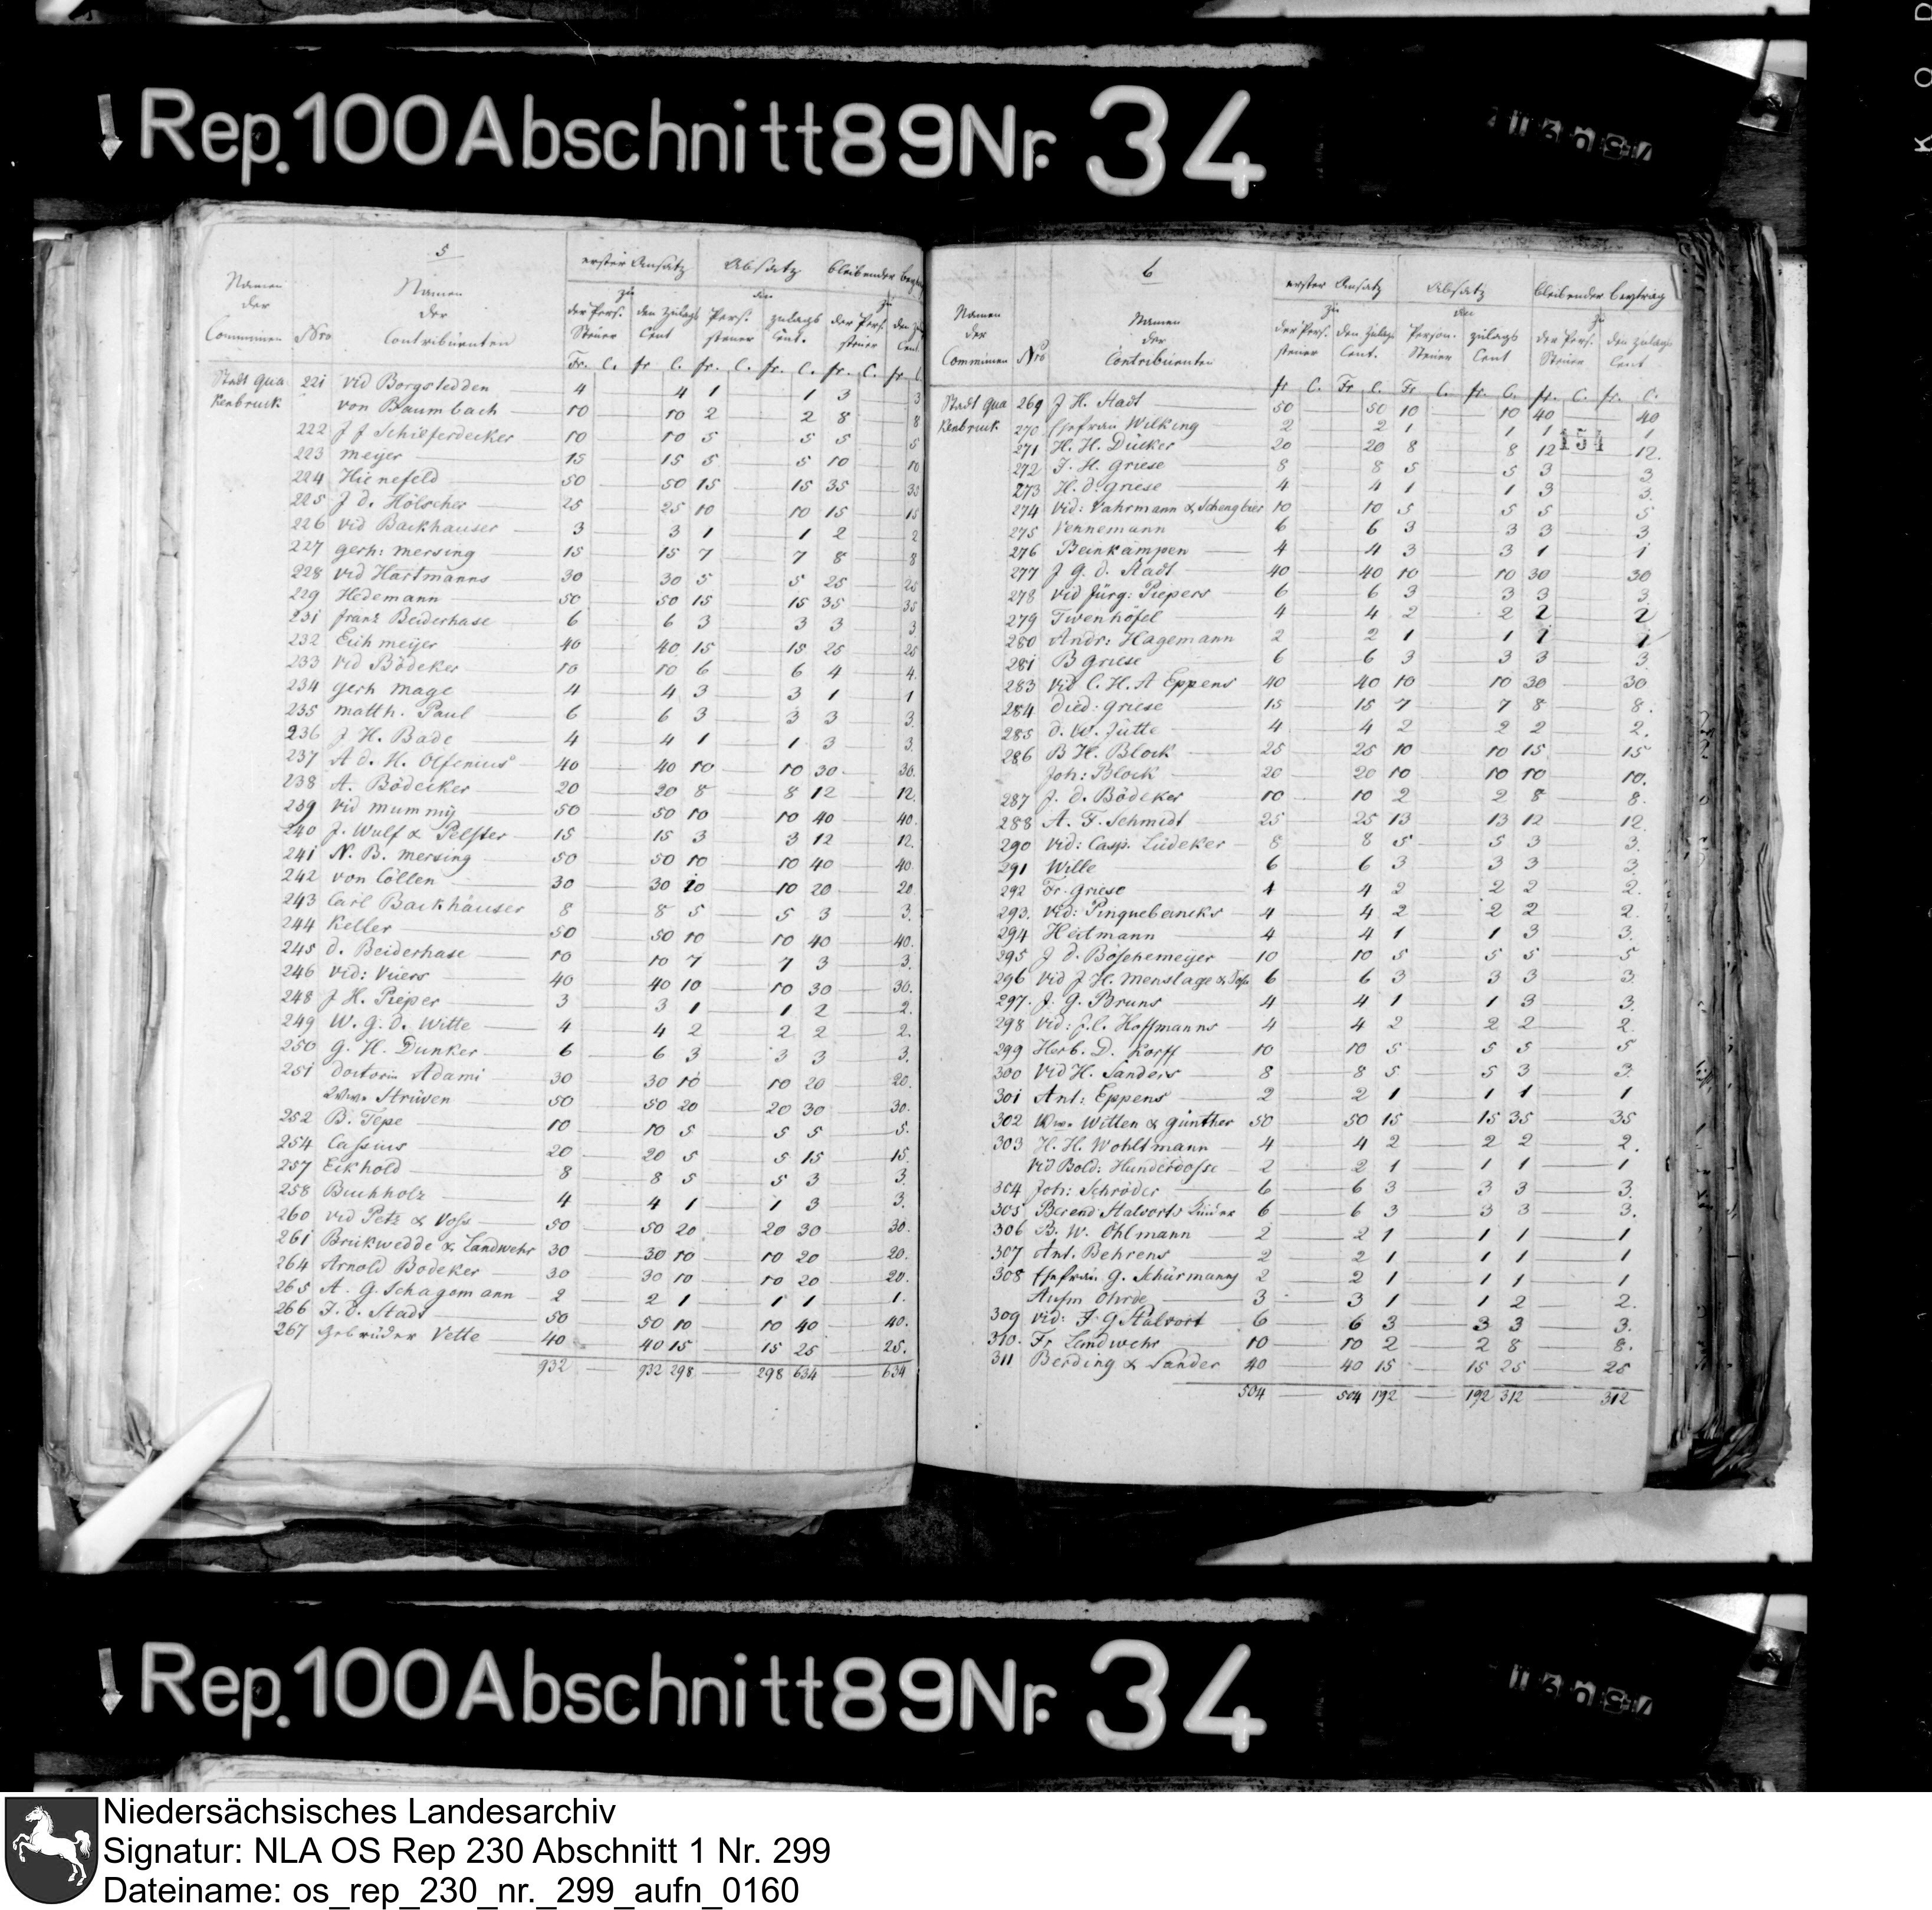 Rep.100Abschnitt89Nr. 34
5
erster Ansatz Absatz bleibender
Namen der Communen Nro Namen der Contribuenten
zu der Pers. Steuer den Zulags Cent Pers. steuer zulags Cent. zu der Pers. steuer
Fr. C. fr C. fr. C. fr. C. fr. C. fr
Stadt Qua 221 vid Borgstedden 4 4 1 1 3 3
Kenbruck von Baumbach 10 10 2 2 8 8
222 J J Schieferdecker 10 10 5 5 5 5
223 meyer 15 15 5 5 10 10
224 Hienefeld 50 50 15 15 35 35
225 J d. Hölscher 25 25 10 10 15 15
226 vid Backhauser 3 3 1 1 2 2
227 gerh: mersing 15 15 7 7 8 8
228 vid Hartmanns 30 30 5 5 25 25
229 Hedemann 50 50 15 15 35 35
231 franz Beiderhase 6 6 3 3 3 3
232 Eichmeyer 40 40 15 15 25 25
233 vid Bödeker 10 10 6 6 4 4.
234 gerh mage 4 4 3 3 1 1
235 matth. Paul 6 6 3 3 3 3.
236 J H. Bade 4 4 1 1 3 3.
237 A d. H. Olfenius 40 40 10 10 30 30.
238 A. Bödecker 20 20 8 8 12 12.
239 vid mummÿ 50 50 10 10 40 40.
240 J. Wulf & Pelster 15 15 3 3 12 12.
241 N. B. mersing 50 50 10 10 40 40.
242 von Cöllen 30 30 10 10 20 20
243 Carl Backhäuser 8 8 5 5 3 3.
244 Keller 50 50 10 10 40 40.
245 d. Beiderhase 10 10 7 7 3 3.
246 vid: Vüers 40 40 10 10 30 30.
248 J H. Pieper 3 3 1 1 2 2.
249 W. g. d. Witte 4 4 2 2 2 2.
250 g. H. Dunker 6 6 3 3 3 3.
251 doctorin Adami 30 30 10 10 20 20.
Wwe Strüven 50 50 20 20 30 30.
252 B. Tepe 10 10 5 5 5 5.
254 Cassius 20 20 5 5 15 15.
257 Eikhold 8 8 5 5 3 3.
258 Buchholz 4 4 1 1 3 3.
260 vid Petz & Voss 50 50 20 20 30 30.
261 Brickwedde & Landwehr 30 30 10 10 20 20.
264 Arnold Bodeker 30 30 10 10 20 20.
265 A. G. Schagemann 2 2 1 1 1 1.
266 J. d. Stadt 50 50 10 10 40 40.
267 Gebrüder Vette 40 40 15 15 25 25.
932 932 298 298 634 634
6
erster Ansatz Absatz bleibender beytrag
Namen der Communen Nro Namen der Contribuenten
zu der Pers. steuer den Zulags Cent. Person. Steuer zulags Cent zu der Pers. Steuer den zulags Cent
fr C. Fr C. Fr C. fr. C. fr. C. fr. C.
Stadt Qua 269 J H. Stadt 50 50 10 10 40 40
Kenbruck 270 Ehefrau Wilking 2 2 1 1 1 1
154
271 H. H. Dücker 20 20 8 8 12 12.
272 J. H. Griese 8 8 5 5 3 3
273 H. d. griese 4 4 1 1 3 3.
274 vid: Vahrmann & Schengbier 10 10 5 5 5 5
275 Vennemann 6 6 3 3 3 3
276 Beinkämpen 4 4 3 3 1 1
277 J G. d. Stadt 40 40 10 10 30 30
278 vid Jürg: Piepers 6 6 3 3 3 3.
279 Twenhöfel 4 4 2 2 2 2
280 Andr: Hagemann 2 2 1 1 1 1
281 B Griese 6 6 3 3 3 3
283 vid C. H. A Eppens 40 40 10 10 30 30
284 died: griese 15 15 7 7 8 8.
285 d. W. Jütte 4 4 2 2 2 2.
286 B H. Block 25 25 10 10 15 15
Joh: Block 20 20 10 10 10 10.
287 J. d. Bödeker 10 10 2 2 8 8.
288 A. F. Schmidt 25 25 13 13 12 12
290 vid: Casp. Lüdeker 8 8 5 5 3 3.
291 Wille 6 6 3 3 3 3
292 Fr. griese 4 4 2 2 2 2.
293. vid: Pinquebeincks 4 4 2 2 2 2.
294 Heitmann 4 4 1 1 3 3.
295 J d. Böschemeyer 10 10 5 5 5 5
296 vid J H. Menslage & 6 6 3 3 3 3
297. J. G. Bruns 4 4 1 1 3 3.
298 vid: J. C. Hoffmanns 4 4 2 2 2 2
299 Herb. D. Korff 10 10 5 5 5 5
300 vid H. Sanders 8 8 5 5 3 3
301 Ant: Eppens 2 2 1 1 1 1
302 Wwe Witten & günther 50 50 15 15 35 35
303 H. H. Wohltmann 4 4 2 2 2 2.
vid Bold: Hunderdosse 2 2 1 1 1 1
304 Joh: Schröder 6 6 3 3 3 3
305 Berend Stalvorts Kinder 6 6 3 3 3 3.
306 B. W. Ohlmann 2 2 1 1 1 1
307 Ant. Behrens 2 2 1 1 1 1
308 Ehefrau G. Schürmanns 2 2 1 1 1 1
Aufm Ohrde 3 3 1 1 2 2.
309 vid: J. G Stalvort 6 6 3 3 3 3.
310. Fr Landwehr 10 10 2 2 8 8.
311 Berding & Sander 40 40 15 15 25 25
504 504 192 192 312 312
Rep.100Abschnitt89Nr. 34
Niedersächsisches Landesarchiv
Signatur: NLA OS Rep 230 Abschnitt 1 Nr. 299
Dateiname: os_rep_230_nr._299_aufn_0160